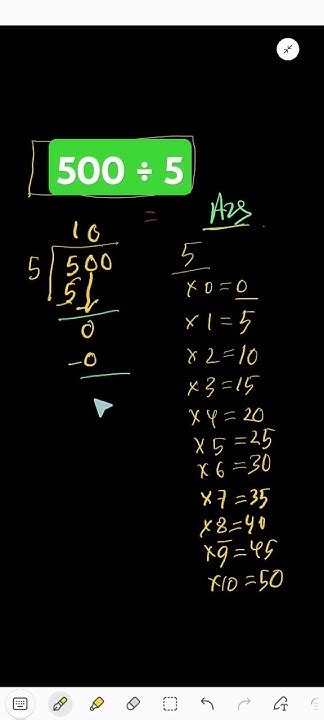 500 ÷ 5
= Ans
10
5 500
5
0
-0
5
x 0 = 0
x 1 = 5
x 2 = 10
x 3 = 15
x 4 = 20
x 5 = 25
x 6 = 30
x 7 = 35
x 8 = 40
x 9 = 45
x 10 = 50